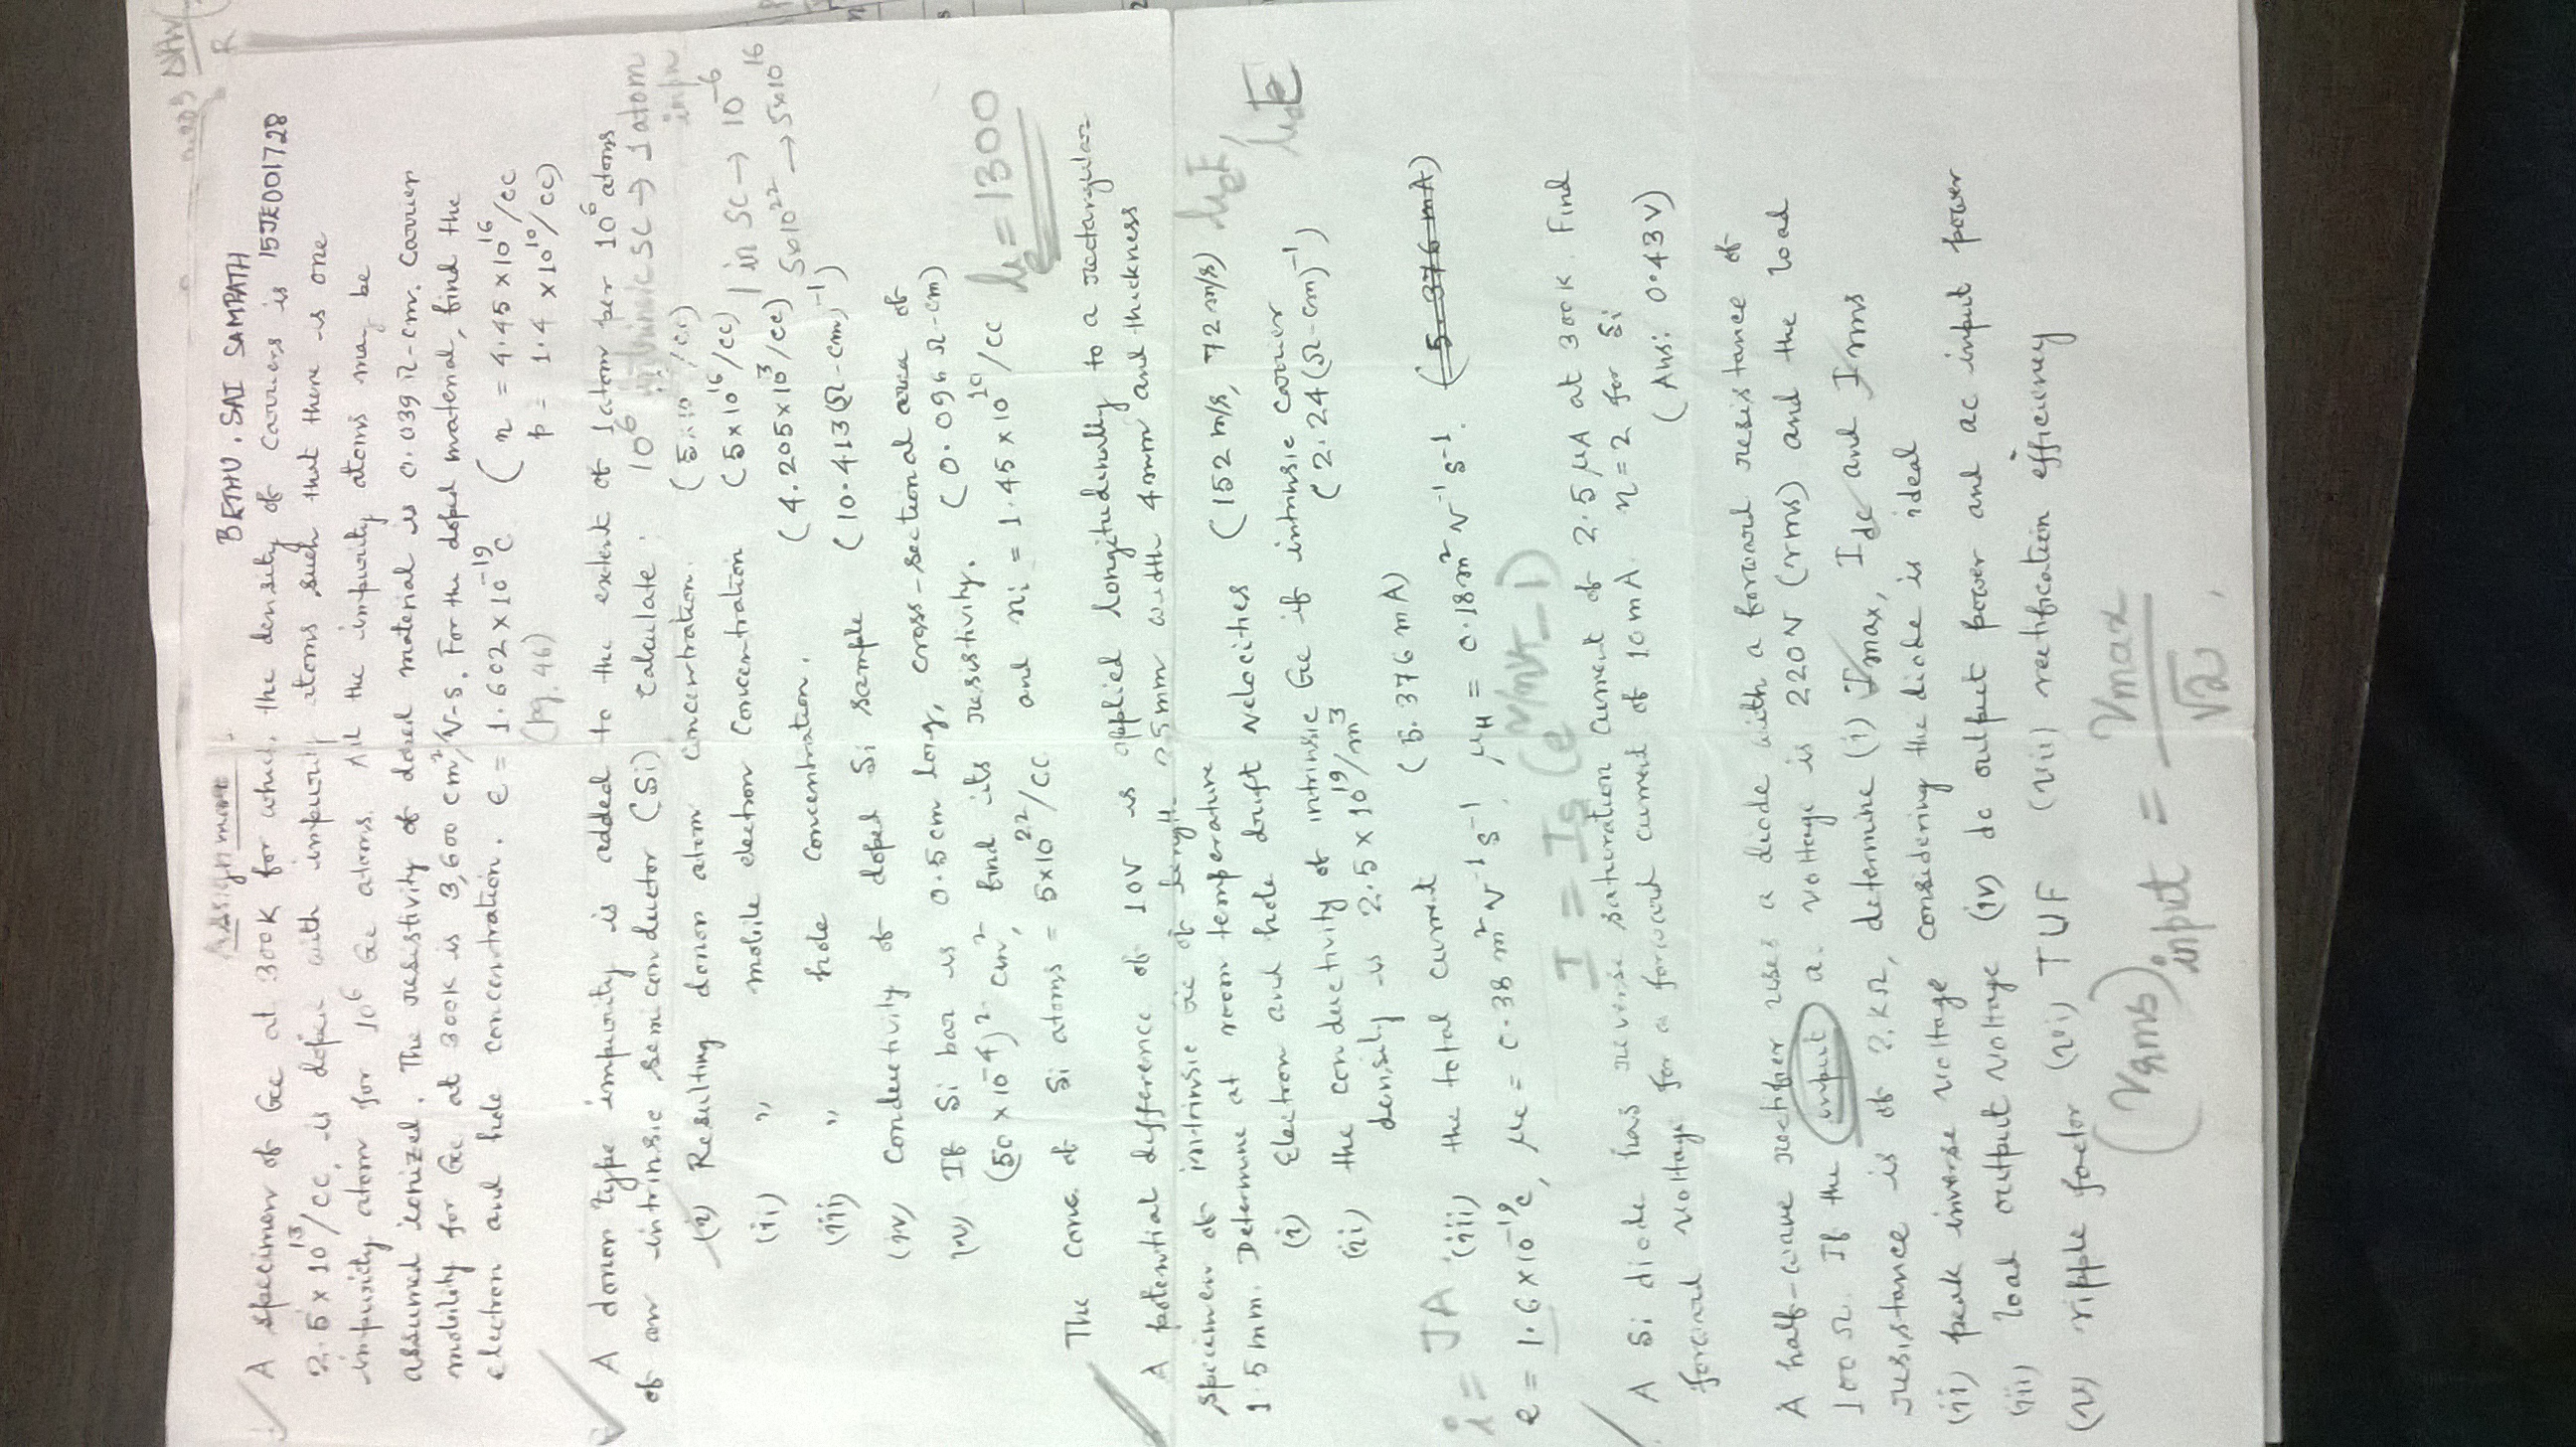 Assignment
BETHU. SAI SAMPATH
15JE001728
A specimen of Ge at 300K for which the density of carriers is
2.5 x 10^13/cc, is doped with impurity atoms such that there is one
impurity atom for 10^6 Ge atoms. All the impurity atoms may be
assumed ionized. The resistivity of doped material is 0.039 Ω-cm. Carrier
mobility for Ge at 300K is 3,600 cm²/V-s. For the doped material, find the
electron and hole concentration. e = 1.602 x 10^-19 C (n = 4.45 x 10^16/cc
(pg. 46) p = 1.4 x 10^10/cc)
A donor type impurity is added to the extent of 1 atom per 10^6 atoms
of an intrinsic semiconductor (Si) Calculate :
10^6 intrinsic SC → 1 atom
(i) Resulting donor atom concentration. (5x10 /cc)
(ii) " mobile electron concentration (5x10^16/cc)
1 in SC → 10^-6
5x10^22 → 5x10^16
(iii) " hole concentration. (4.205x10^3/cc)
(iv) Conductivity of doped Si sample (10.413(Ω-cm)^-1)
(v) If Si bar is 0.5cm long, cross-sectional area of
(50 x 10^-4)² cm², find its resistivity. (0.096 Ω-cm)
The conc. of Si atoms = 5x10^22/cc and ni = 1.45 x 10^10/cc
μe = 1300
A potential difference of 10V is applied longitudinally to a rectangular
specimen of intrinsic Ge of length 25mm width 4mm and thickness
1.5mm. Determine at room temperature
(i) Electron and hole drift velocities (152 m/s, 72 m/s) μeE, μhE
(ii) the conductivity of intrinsic Ge if intrinsic carrier
density is 2.5 x 10^19/m³ (2.24(Ω-cm)^-1)
i = JA (iii) the total current (5.376 mA)
e = 1.6x10^-19c, μe = 0.38 m²V^-1s^-1, μH = 0.18m²V^-1s^-1. (5.376 mA)
I = Is (e^V/ηVT - 1)
A Si diode has reverse saturation current of 2.5 μA at 300K. Find
forward voltage for a forward current of 10mA. n=2 for Si
(Ans: 0.43V)
A half-wave rectifier uses a diode with a forward resistance of
100 Ω. If the input a. voltage is 220V (rms) and the load
resistance is of 2KΩ, determine (i) Imax, Idc and Irms
(ii) peak inverse voltage considering the diode is ideal
(iii) load output voltage (iv) dc output power and ac input power
(v) ripple factor (vi) TUF (vii) rectification efficiency
(Vrms)input = Vmax/√2